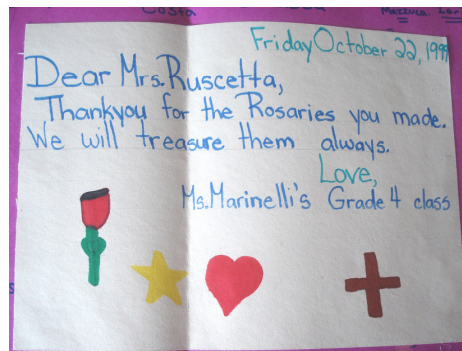 Costa
Friday October 22, 1999
Dear Mrs. Ruscetta,
Thankyou for the Rosaries you made.
We will treasure them always.
Love,
Ms. Marinelli's Grade 4 class